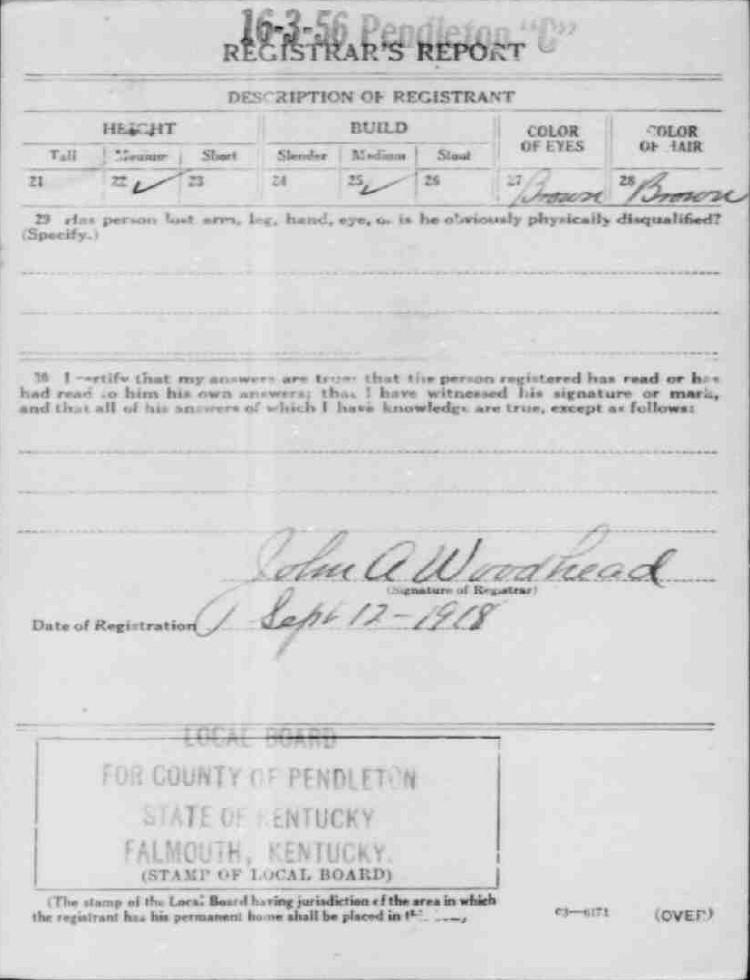 16-3-56 Pendleton "C"
REGISTRAR'S REPORT
DESCRIPTION OF REGISTRANT
HEIGHT BUILD COLOR OF EYES COLOR OF HAIR
Tall Medium Short Slender Medium Stout
21 22 ✓ 23 24 25 ✓ 26 27 Brown 28 Brown
29 Has person lost arm, leg, hand, eye, or is he obviously physically disqualified?
(Specify.)
30 I certify that my answers are true; that the person registered has read or has
had read to him his own answers; that I have witnessed his signature or mark,
and that all of his answers of which I have knowledge are true, except as follows:
John A Woodhead
(Signature of Registrar)
Date of Registration Sept 12-1918
LOCAL BOARD
FOR COUNTY OF PENDLETON
STATE OF KENTUCKY
FALMOUTH, KENTUCKY.
(STAMP OF LOCAL BOARD)
(The stamp of the Local Board having jurisdiction of the area in which
the registrant has his permanent home shall be placed in
03—6171 (OVER)